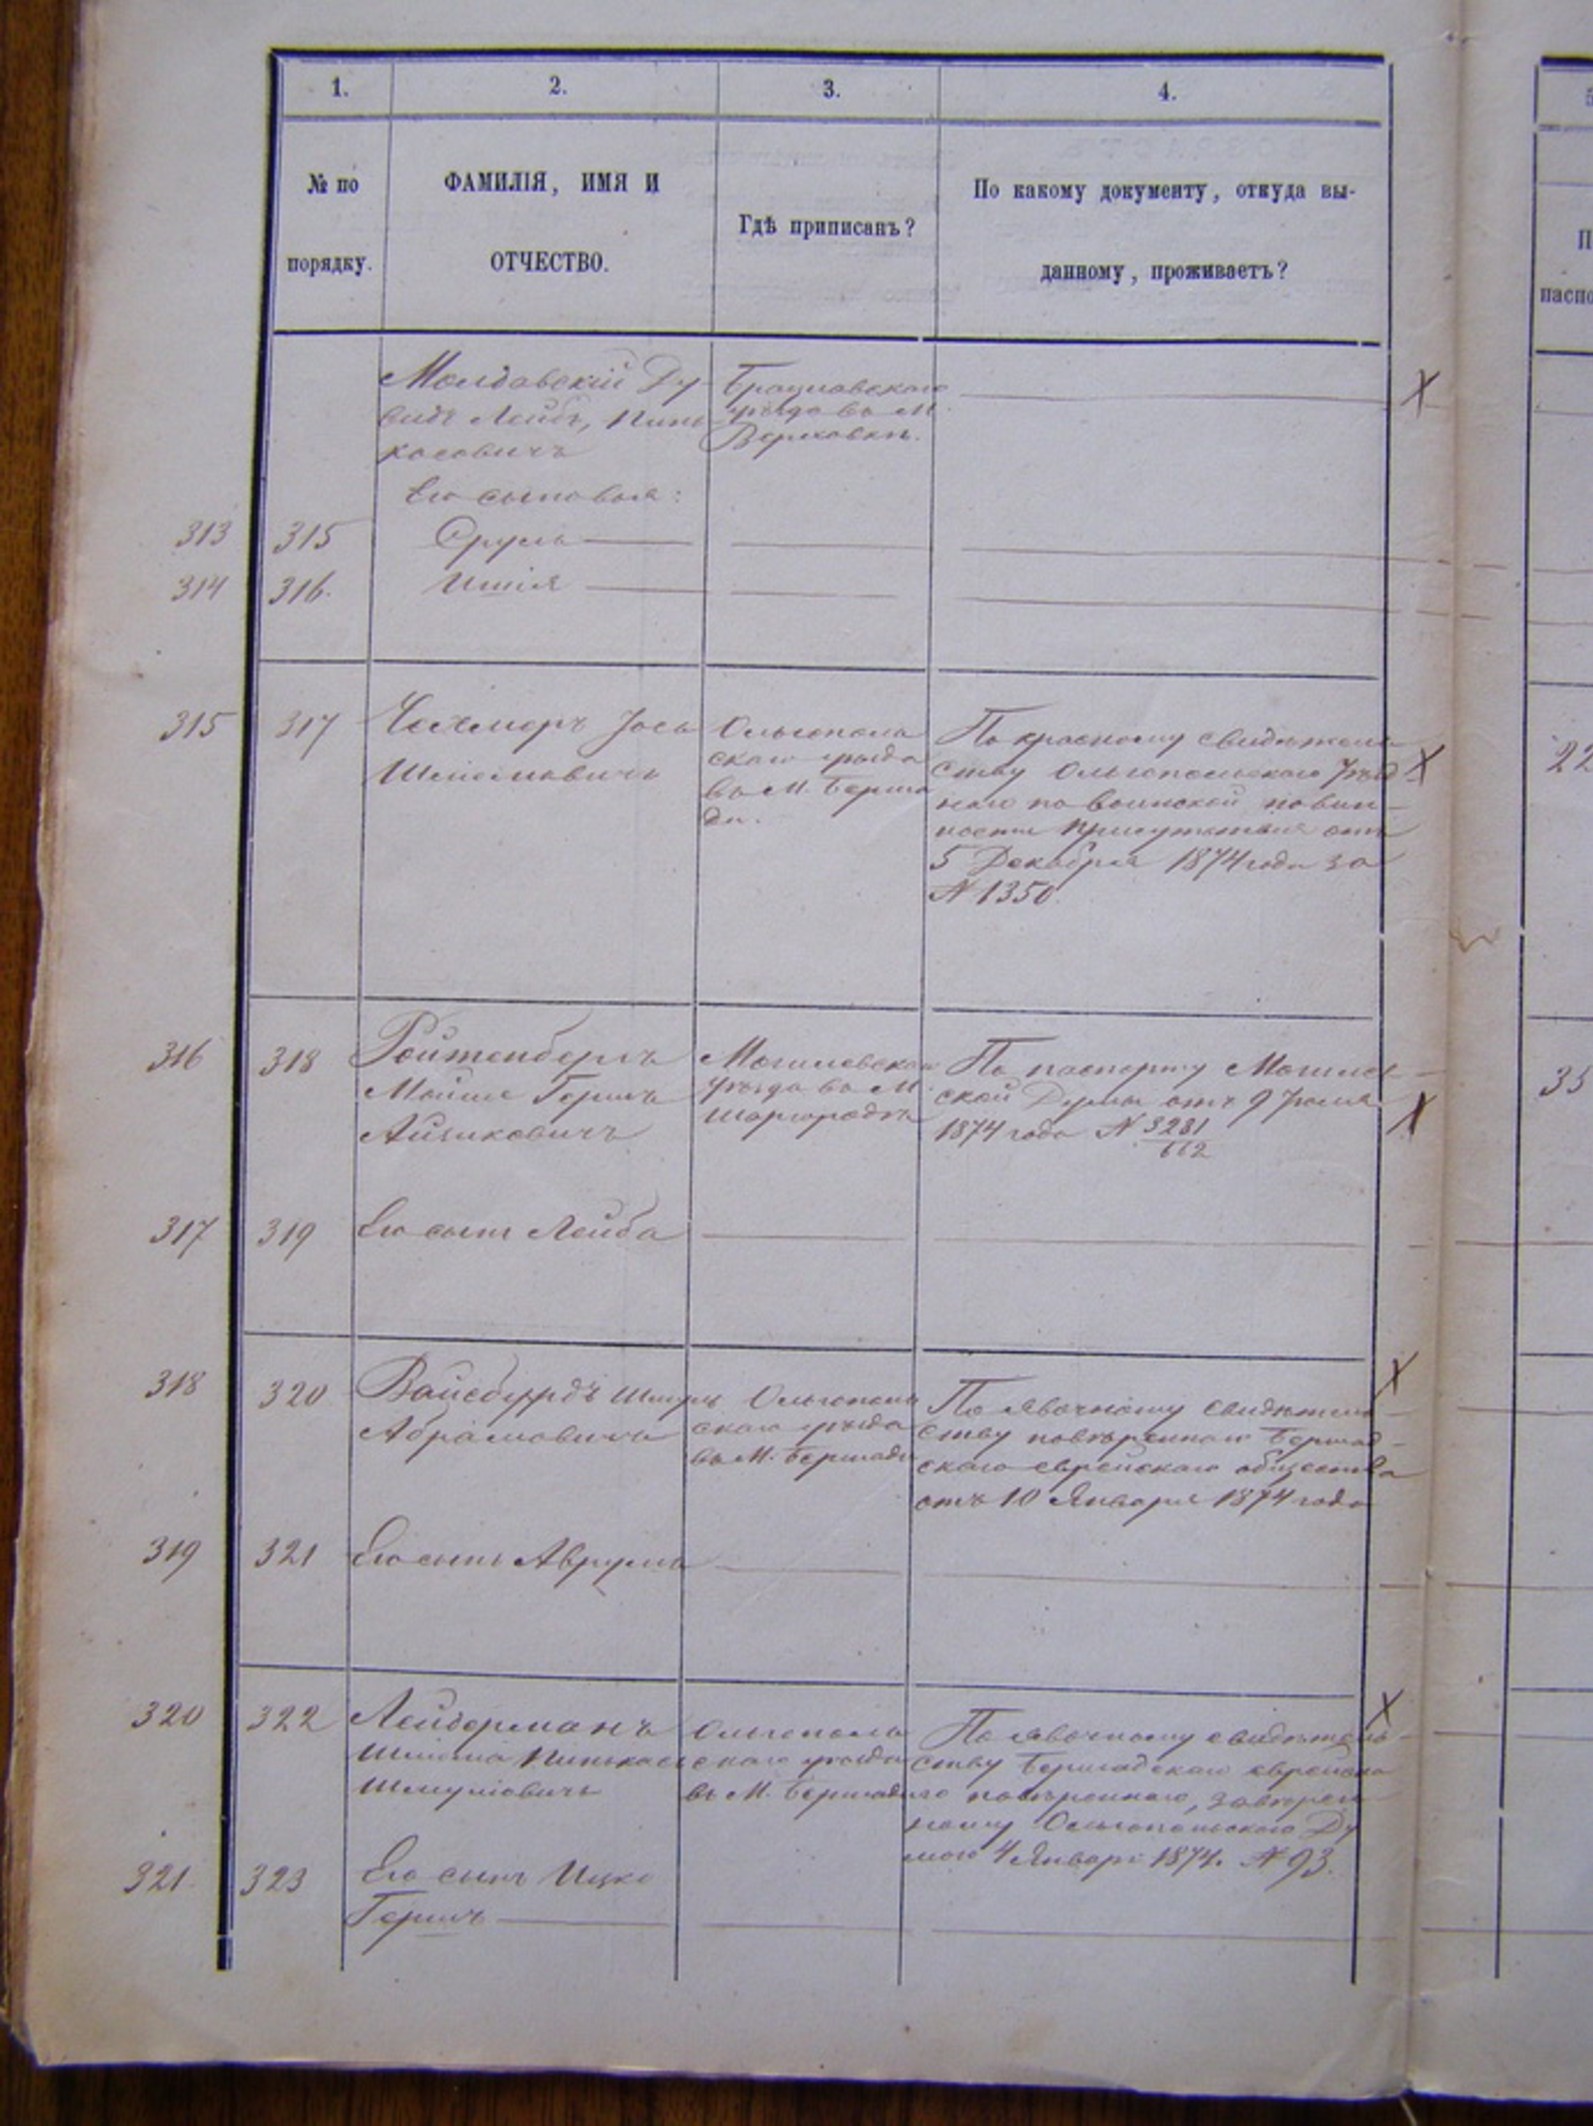 1. 2. 3. 4.
№ по
порядку.
ФАМИЛІЯ, ИМЯ И
ОТЧЕСТВО.
Гдѣ приписанъ?
По какому документу, откуда вы-
данному, проживаетъ?
паспо
Молдавскій Ду-
видъ Лейбъ, Пинь-
касовичъ
Брацлавскаго
уѣзда въ М.
Верховкѣ.
Его сыновья:
313 315 Сруль
314 316. Ишія
315 317
Іось
Шлiомовичъ
Ольгополь
скаго уѣзда
въ М. Берша
ди.
По красному свидѣтель
ству Ольгопольскаго Уѣзд
наго по воинской повин-
ности Присутствія отъ
5 Декабря 1874 года за
№ 1350.
22
316 318 Ройтенбергъ
Мойше Гершъ
Айзиковичъ
Могилевскаго
уѣзда въ М.
Шаргородѣ
По паспорту Могилев-
ской Думы отъ 9 Іюля
1874 года № 3281
612
33
317 319 Его сынъ Лейба
318 320 Вайсбурдъ Шмуль
Абрамовичъ
Ольгополь
скаго уѣзда
въ М. Бершади
По явочному свидѣтель-
ству повѣреннаго Бершад-
скаго еврейскаго общества
отъ 10 Января 1874 года
319 321 Его сынъ Аврумъ
320 322 Лейдерманъ
Шліома Пинькас
Шмуліовичъ
Ольгополь
скаго уѣзда
въ М. Бершади
По явочному свидѣтель-
ству Бершадскаго еврейска
го повѣреннаго, завѣрен-
ному Ольгопольскою Ду
мою 4 Января 1874. № 93.
321. 323 Его сынъ Ицко
Гершъ